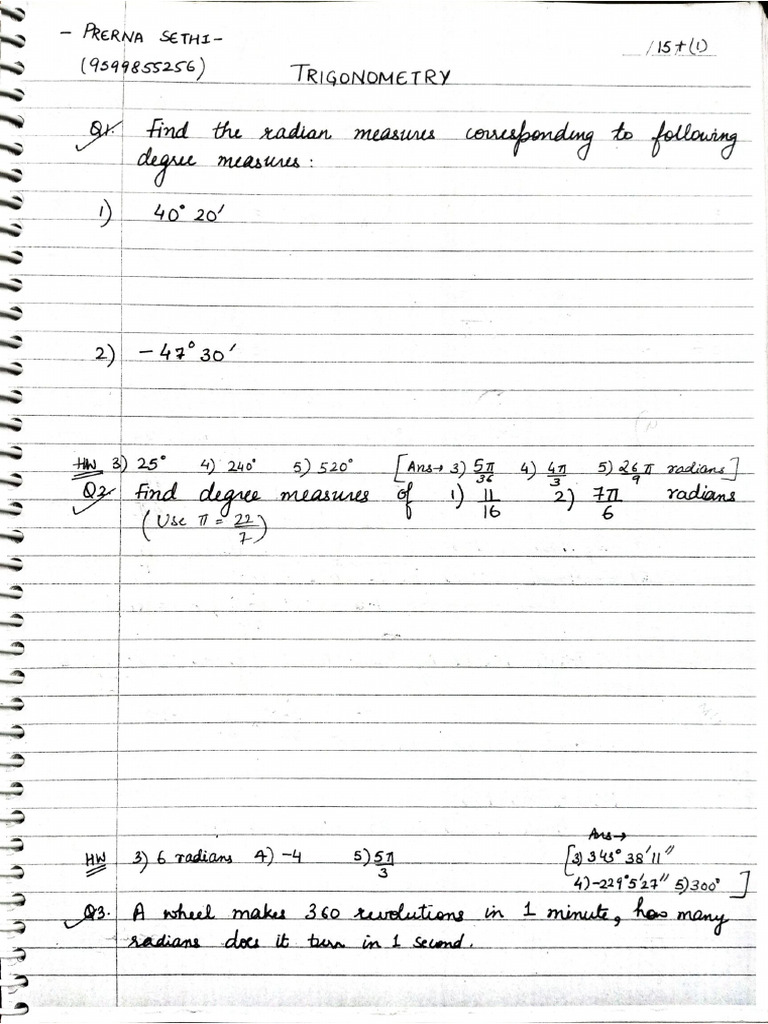 - PRERNA SETHI -
(9599855256)
/15+(1)
TRIGONOMETRY
Q1. Find the radian measures corresponding to following
degree measures :
1) 40° 20′
2) -47° 30′
HW 3) 25° 4) 240° 5) 520° [Ans→ 3) 5π/36 4) 4π/3 5) 26π/9 radians]
Q2. Find degree measures of 1) 11/16 2) 7π/6 radians
(Use π = 22/7)
Ans→
HW 3) 6 radians 4) -4 5) 5π/3 [3) 343° 38′ 11″
4) -229° 5′ 27″ 5) 300° ]
Q3. A wheel makes 360 revolutions in 1 minute, how many
radians does it turn in 1 second.